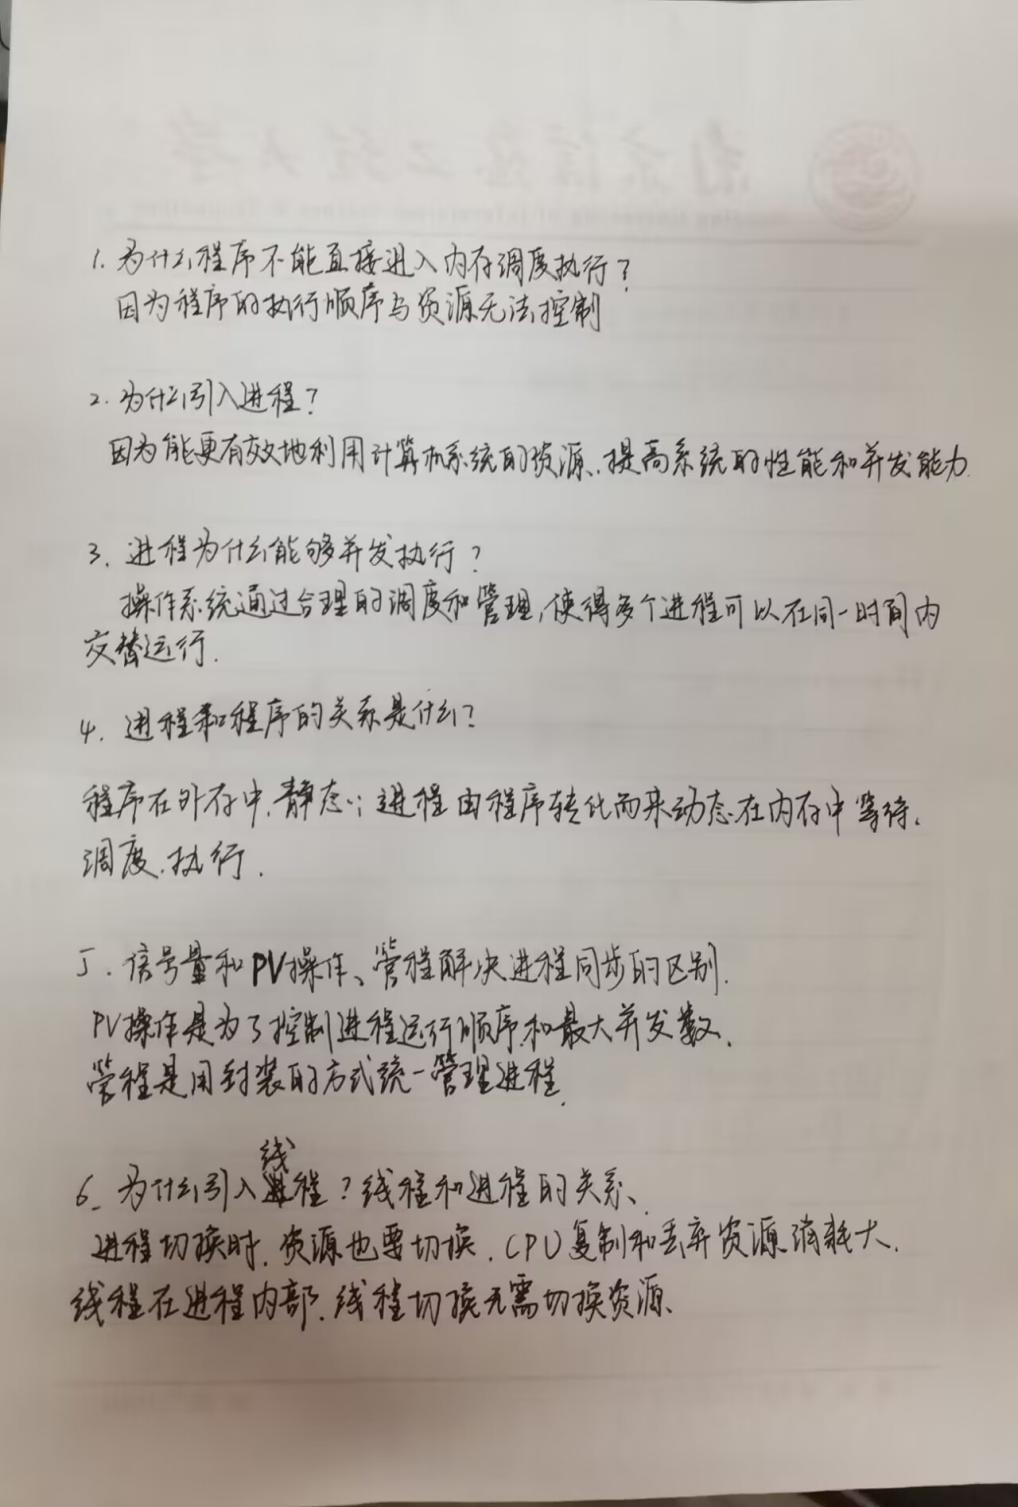 1. 为什么程序不能直接进入内存调度执行？
因为程序的执行顺序与资源无法控制
2. 为什么引入进程？
因为能更有效地利用计算机系统的资源、提高系统的性能和并发能力.
3. 进程为什么能够并发执行？
操作系统通过合理的调度和管理,使得多个进程可以在同一时间内
交替运行.
4. 进程和程序的关系是什么？
程序在外存中.静态；进程由程序转化而来动态在内存中等待、
调度.执行.
5. 信号量和PV操作、管程解决进程同步的区别.
PV操作是为了控制进程运行顺序和最大并发数.
管程是用封装的方式统一管理进程.
6. 为什么引入线程？线程和进程的关系、
进程切换时.资源也要切换.CPU复制和丢弃资源消耗大.
线程在进程内部.线程切换无需切换资源、